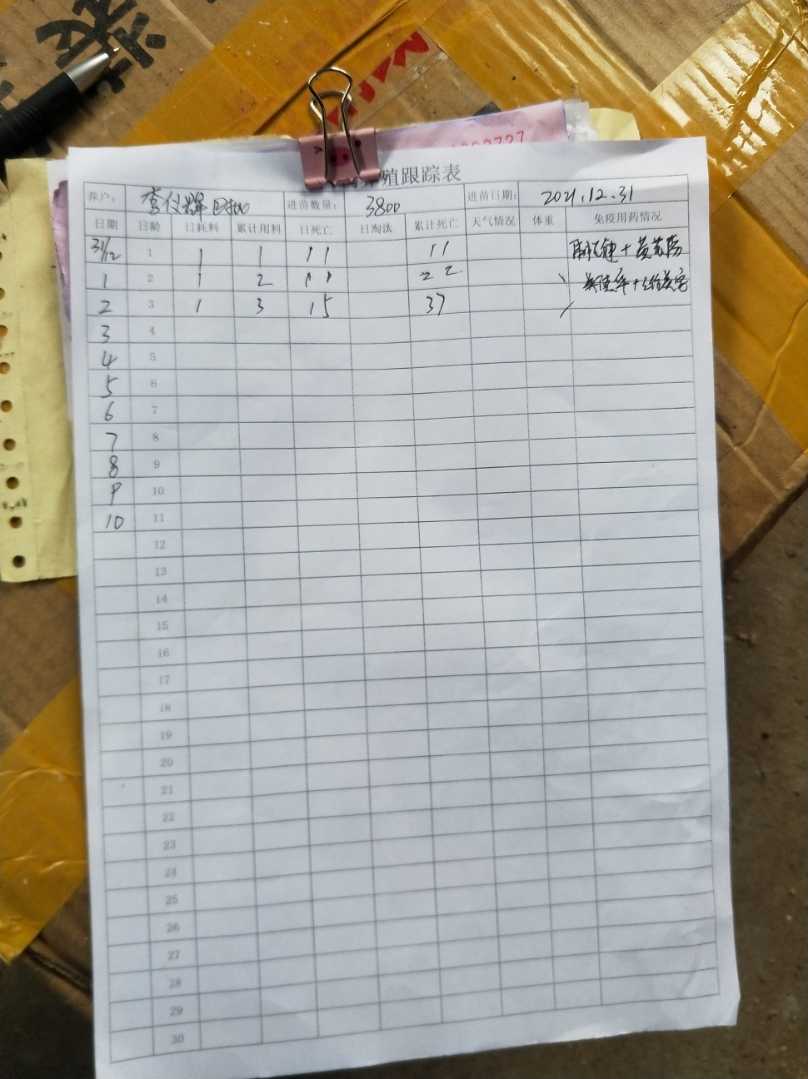 殖跟踪表
养户： 进苗数量： 3800 进苗日期： 2021.12.31
日期 日龄 日耗料 累计用料 日死亡 日淘汰 累计死亡 天气情况 体重 免疫用药情况
31/12 1 1 1 11 11
1 2 1 2 11 22
2 3 1 3 15 37
3 4
4 5
5 6
6 7
7 8
8 9
9 10
10 11
12
13
14
15
16
17
18
19
20
21
22
23
24
25
26
27
28
29
30